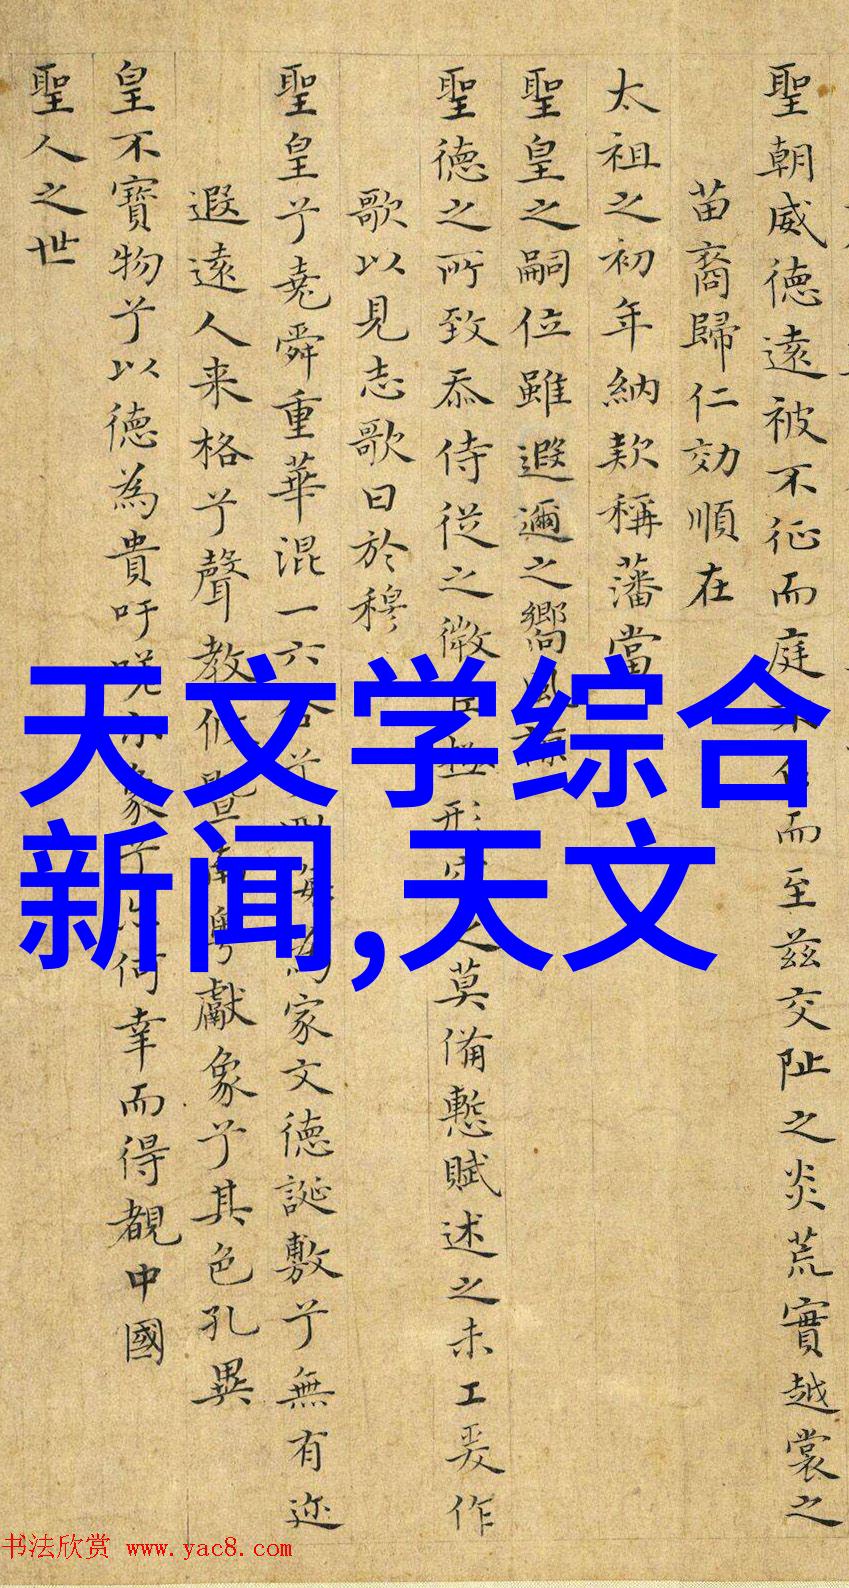 聖朝威德遠被不征而庭不而至茲交阯之炎荒實越裳之
苗裔歸仁効順在
太祖之初年納款稱藩當
聖皇之嗣位雖遐邇之嚮風
聖德之所致忝侍從之微臣極形之莫備慙賦述之未工爰作
歌以見志歌曰於穆
聖皇兮堯舜重華混一六合兮家文德誕敷兮無有迩
遐遠人来格兮聲教暨南粤獻象兮其色孔異
皇不寶物兮以德為貴吁象兮何幸而得覩中國
聖人之世
天文学综合
新闻,天文
书法欣赏 www.yac8.com